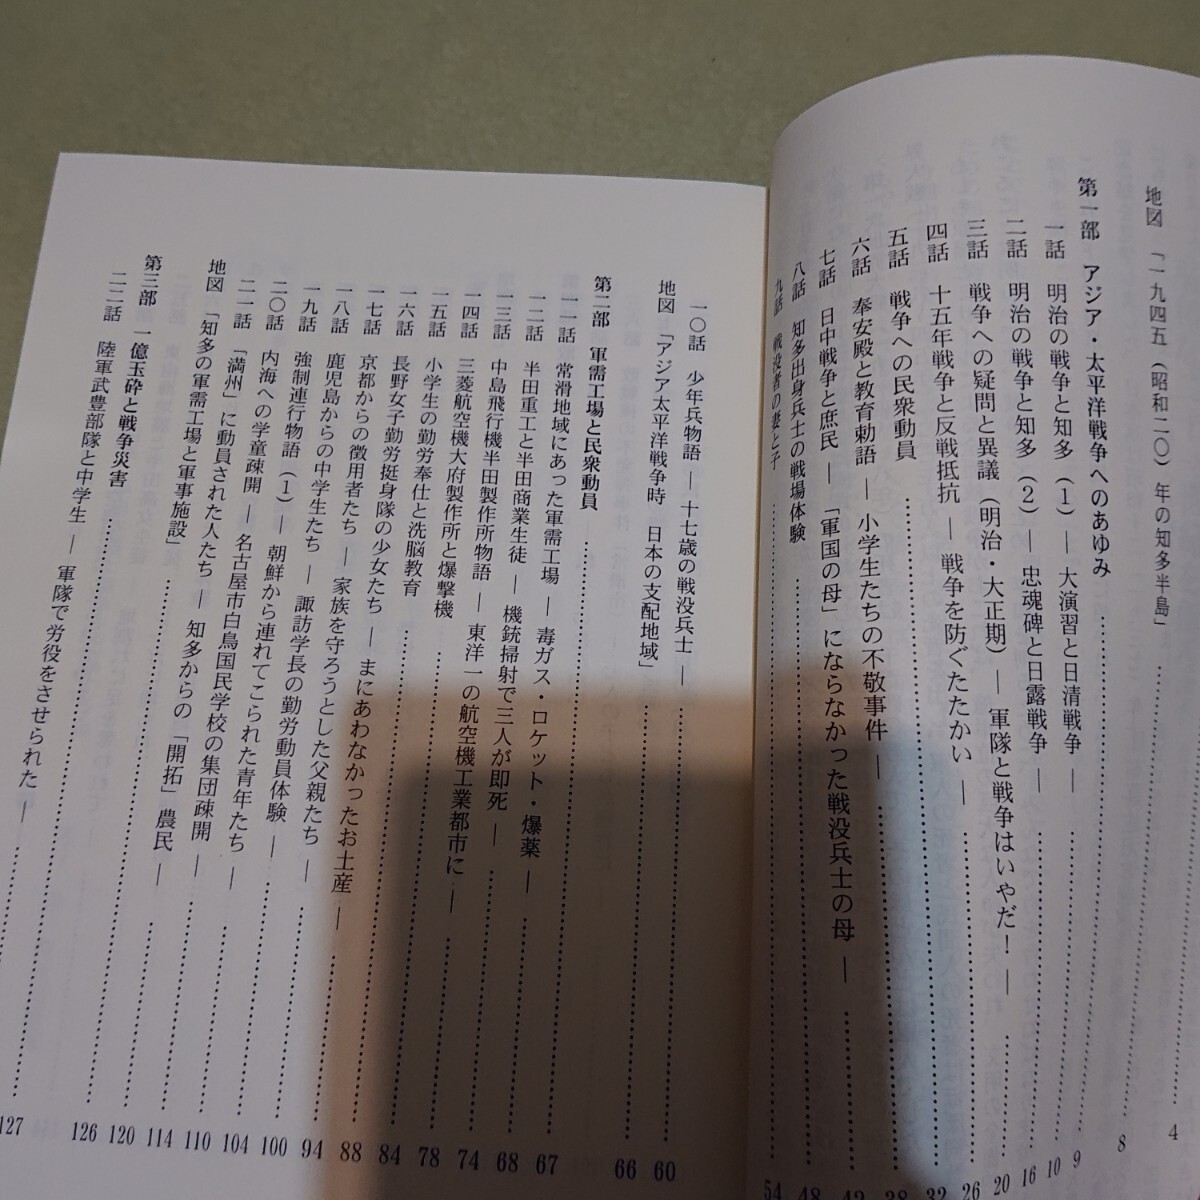 地図　「一九四五（昭和二〇）年の知多半島」 8
第一部　アジア・太平洋戦争へのあゆみ 9
一話　明治の戦争と知多（１）― 大演習と日清戦争 ― 10
二話　明治の戦争と知多（２）― 忠魂碑と日露戦争 ― 16
三話　戦争への疑問と異議（明治・大正期）― 軍隊と戦争はいやだ！― 20
四話　十五年戦争と反戦抵抗 ― 戦争を防ぐたたかい ― 26
五話　戦争への民衆動員 32
六話　奉安殿と教育勅語 ― 小学生たちの不敬事件 ― 38
七話　日中戦争と庶民 ― 「軍国の母」にならなかった戦没兵士の母 ― 42
八話　知多出身兵士の戦場体験 48
九話　戦没者の妻と子 54
4
一〇話　少年兵物語 ― 十七歳の戦没兵士 ― 60
地図　「アジア太平洋戦争時　日本の支配地域」 66
第二部　軍需工場と民衆動員 67
一一話　常滑地域にあった軍需工場 ― 毒ガス・ロケット・爆薬 ― 68
一二話　半田重工と半田商業生徒 ― 機銃掃射で三人が即死 ― 74
一三話　中島飛行機半田製作所物語 ― 東洋一の航空機工業都市に ― 78
一四話　三菱航空機大府製作所と爆撃機 84
一五話　小学生の勤労奉仕と洗脳教育 88
一六話　長野女子勤労挺身隊の少女たち ― まにあわなかったお土産 ― 94
一七話　京都からの徴用者たち ― 家族を守ろうとした父親たち ― 100
一八話　鹿児島からの中学生たち ― 諏訪学長の勤労動員体験 ― 104
一九話　強制連行物語（１）― 朝鮮から連れてこられた青年たち ― 110
二〇話　内海への学童疎開 ― 名古屋市白鳥国民学校の集団疎開 ― 114
二一話　「満州」に動員された人たち ― 知多からの「開拓」農民 ― 120
地図　「知多の軍需工場と軍事施設」 126
第三部　一億玉砕と戦争災害 127
二二話　陸軍武豊部隊と中学生 ― 軍隊で労役をさせられた ―